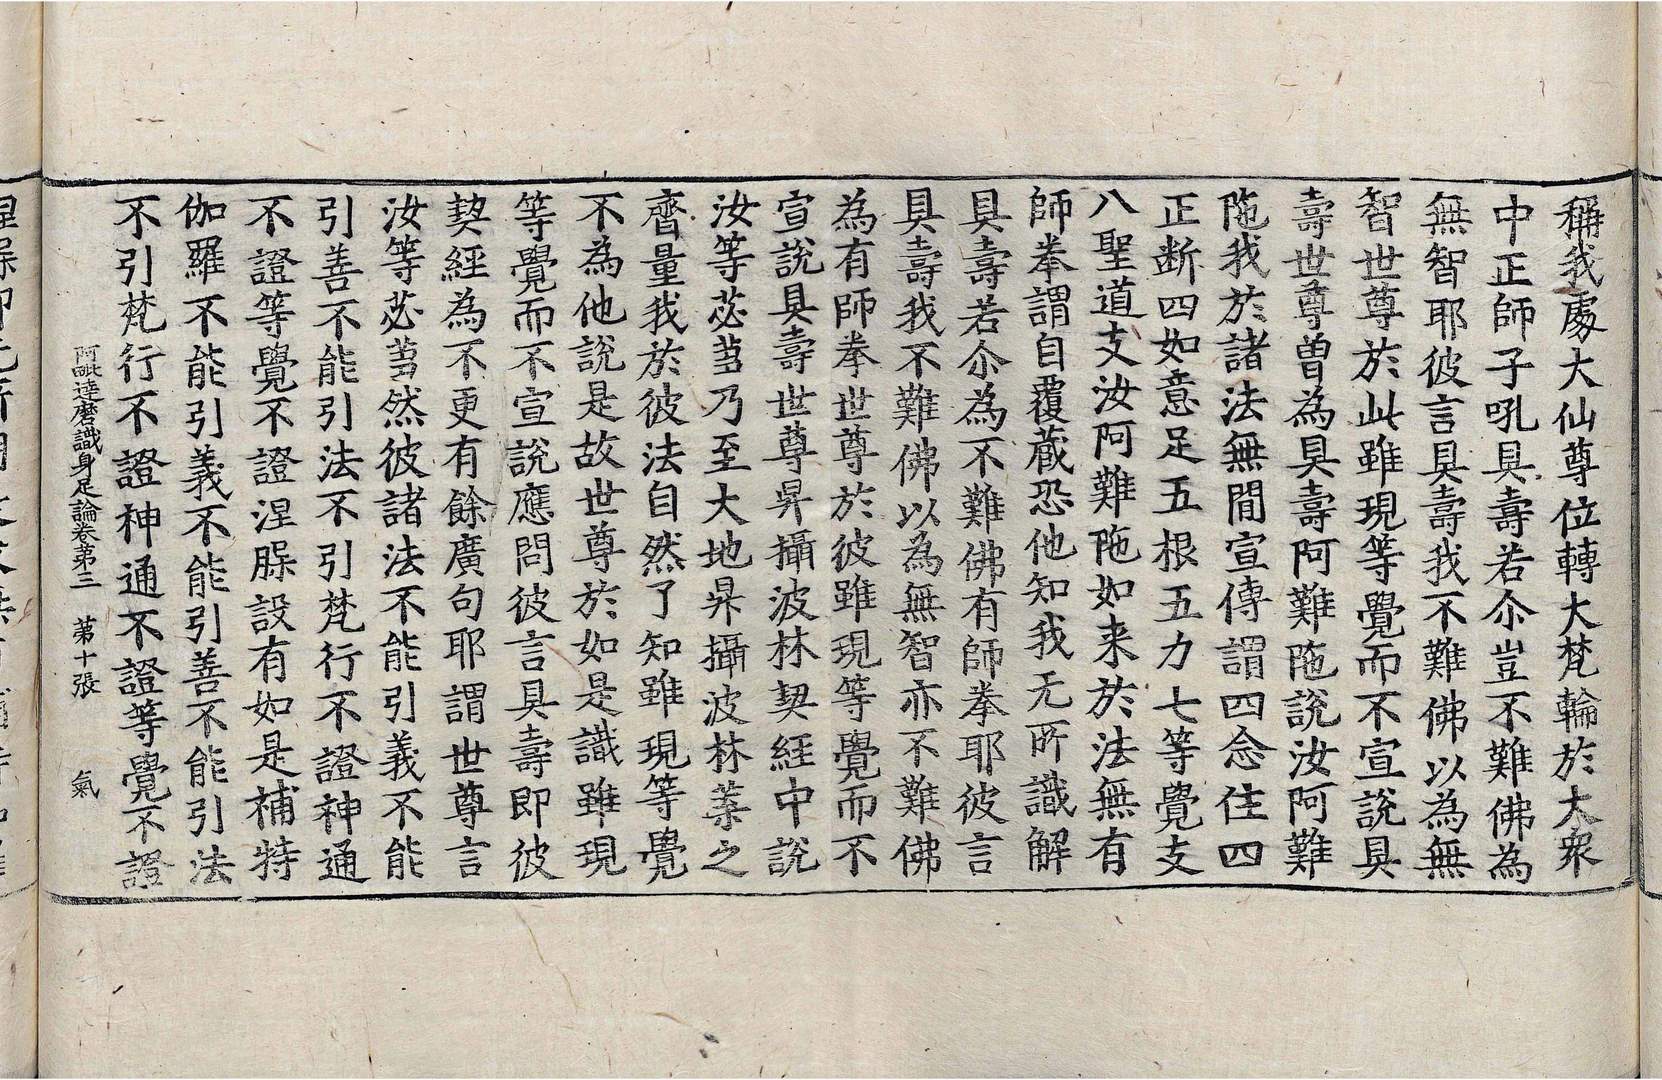 稱我處大仙尊位轉大梵輪於大衆
中正師子吼具壽若尒豈不難佛為
無智耶彼言具壽我不難佛以為無
智世尊於此雖現等覺而不宣說具
壽世尊曾為具壽阿難陁說汝阿難
陁我於諸法無間宣傳謂四念住四
正断四如意足五根五力七等覺支
八聖道支汝阿難陁如来於法無有
師拳謂自覆藏恐他知我无所識解
具壽若尒為不難佛有師拳耶彼言
具壽我不難佛以為無智亦不難佛
為有師拳世尊於彼雖現等覺而不
宣說具壽世尊昇攝波林契經中說
汝等苾芻乃至大地昇攝波林葉之
齊量我於彼法自然了知雖現等覺
不為他說是故世尊於如是識雖現
等覺而不宣說應問彼言具壽即彼
契經為不更有餘廣句耶謂世尊言
汝等苾芻然彼諸法不能引義不能
引善不能引法不引梵行不證神通
不證等覺不證涅脲設有如是補特
伽羅不能引義不能引善不能引法
不引梵行不證神通不證等覺不證
阿毗達磨識身足論卷第三 第十張 氣